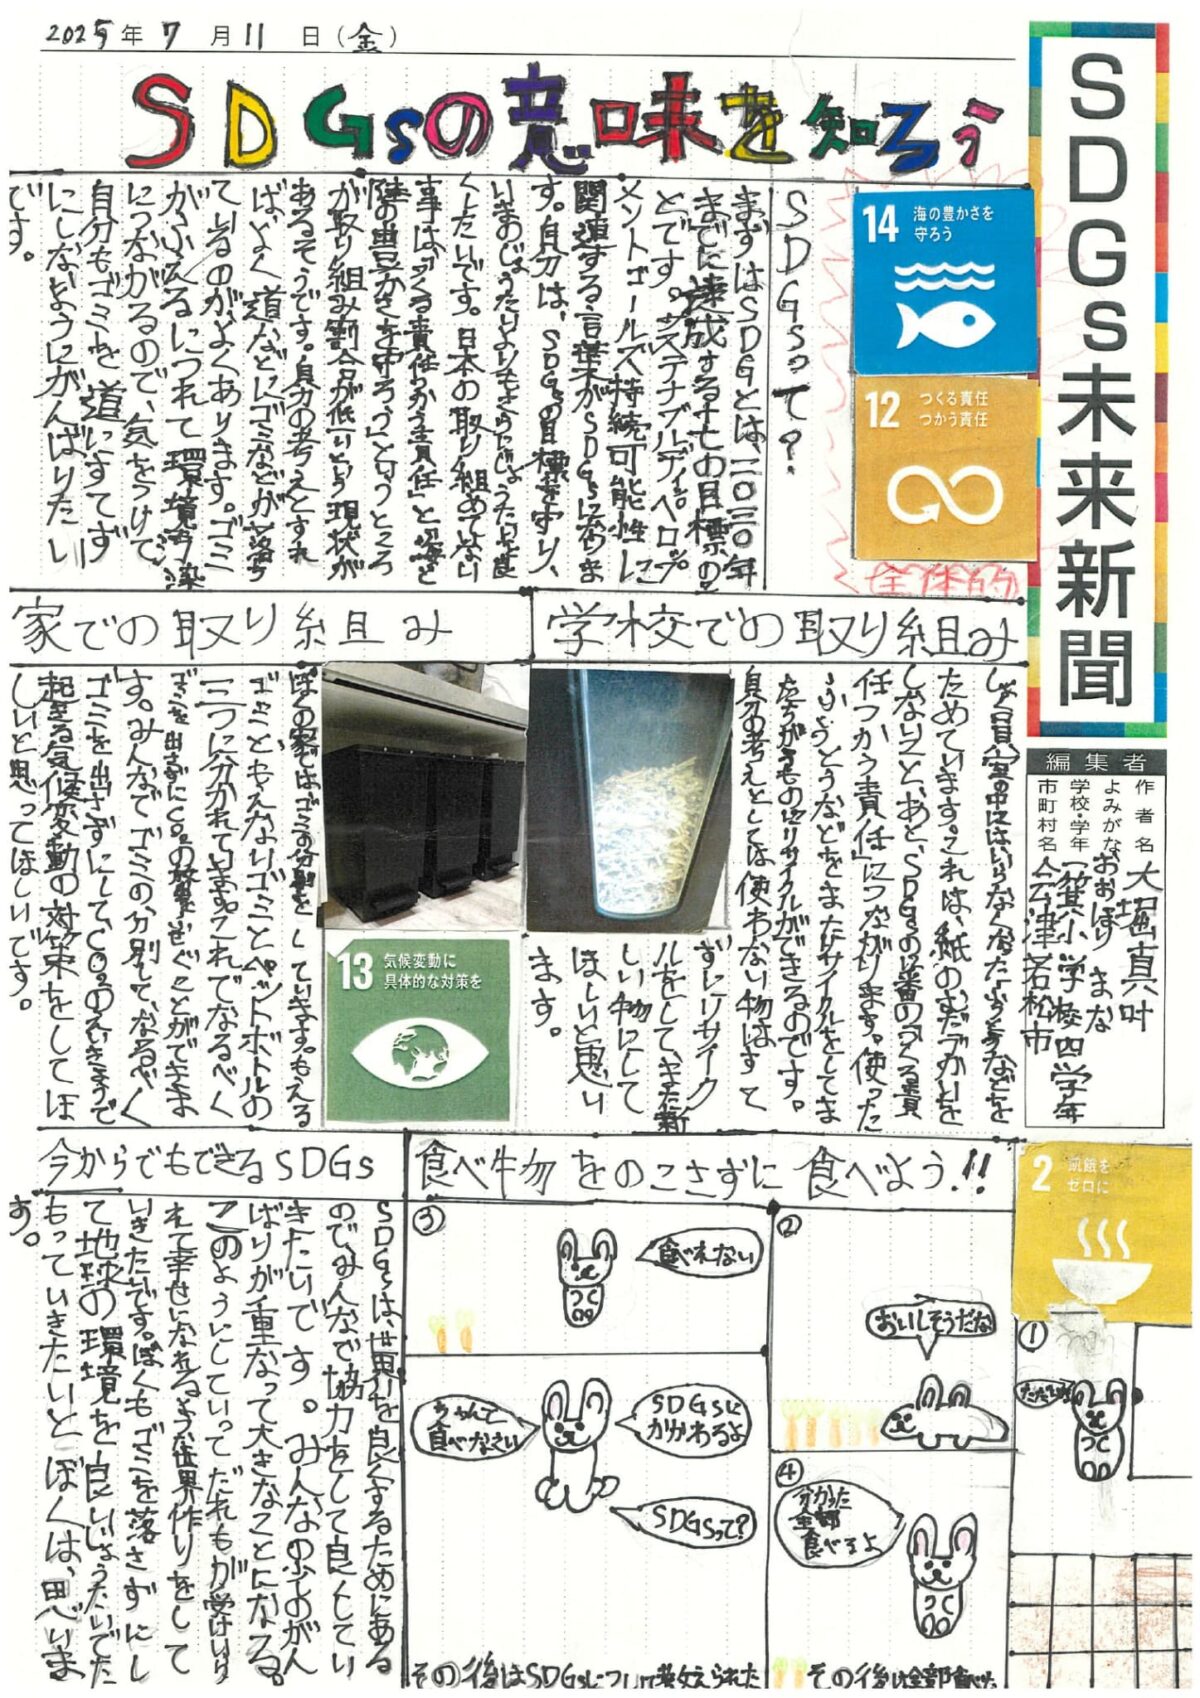 2025年7月11日(金)
SDGs未来新聞
SDGsの意味を知ろう
14 海の豊かさを
守ろう
12 つくる責任
つかう責任
全体的
SDGsって?
まずはSDGとは、二〇三〇年
までに達成する十七の目標のこ
とです。サステナブルディベロップ
メントゴールズ持続可能性に
関連する言葉がSDGsになりま
す。自分は、SDGsの目標を守り、
いまのじょうたいよりもさらにじょうたいを良
くしたいです。日本の取り組めてない
事は「つくる責任つかう責任」と「海と
陸の豊かさを守ろう」というところ
が取り組み割合が低いという現状が
あるそうです。自分の考えとすれ
ば、よく道などにゴミなどが落ち
ているのがよくあります。ゴミ
がふえるにつれて環境汚染
につながるので、気をつけて、
自分もゴミを道にすてず
にしないようにがんばりたい
です。
編集者
作者名 大堀真叶
よみがな おおほり まな
学校・学年 一箕小学校四学年
市町村名 会津若松市
学校での取り組み
しょく員室の中にはいらなくなったふうとうなどを
ためています。これは、紙のむだづかいを
しないことと、あと、SDGsの12番のつくる責
任つかう責任につながります。使った
ふうとうなどをまたリサイクルをしてま
たちがうものにリサイクルができるのです。
自分の考えとしては使わない物はすて
ずにリサイク
ルをして、また新
しい物にして
ほしいと思い
ます。
家での取り組み
ぼくの家ではゴミの分別をしています。もえる
ゴミともえないゴミとペットボトルの
三つに分かれています。これでなるべく
ゴミを出さずにCO₂の放出をふせぐことができま
す。みんなでゴミの分別して、なるべく
ゴミを出さずにして、CO₂のえいきょうで
起きる気候変動の対策をしてほ
しいと思ってほしいです。
13 気候変動に
具体的な対策を
食べ物をのこさずに食べよう!!
2 飢餓を
ゼロに
①
ただいま
②
おいしそうだな
③
食べれない
ちゃんと
食べなさい
SDGsに
かかわるよ
SDGsって?
その後はSDGsについて教えられた
④
分かった
全部
食べるよ
その後は全部食べた
今からでもできるSDGs
SDGsは、世界を良くするためにある
ので、みんなで協力をして良くしてい
きたいです。みんなの少しのがん
ばりが重なって大きなことになる。
このようにしていってだれもが受け
えて幸せになれるような世界作りをして
いきたいです。ぼくもゴミを落さずにし
て地球の環境を良いじょうたいでた
もっていきたいとぼくは、思いま
す。